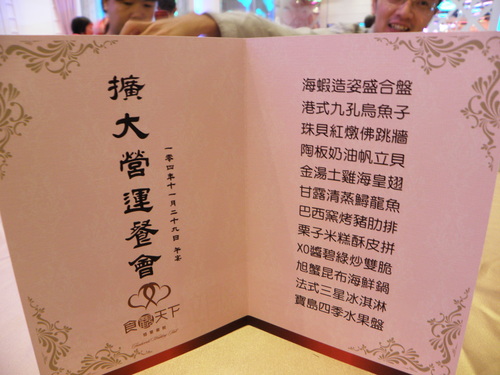 擴大營運餐會
一零四年十一月二十九日 午宴
食尚天下
海蝦造姿盛合盤
港式九孔烏魚子
珠貝紅燉佛跳牆
陶板奶油帆立貝
金湯土雞海皇翅
甘露清蒸鱘龍魚
巴西窯烤豬肋排
栗子米糕酥皮拼
XO醬碧綠炒雙脆
旭蟹昆布海鮮鍋
法式三星冰淇淋
寶島四季水果盤